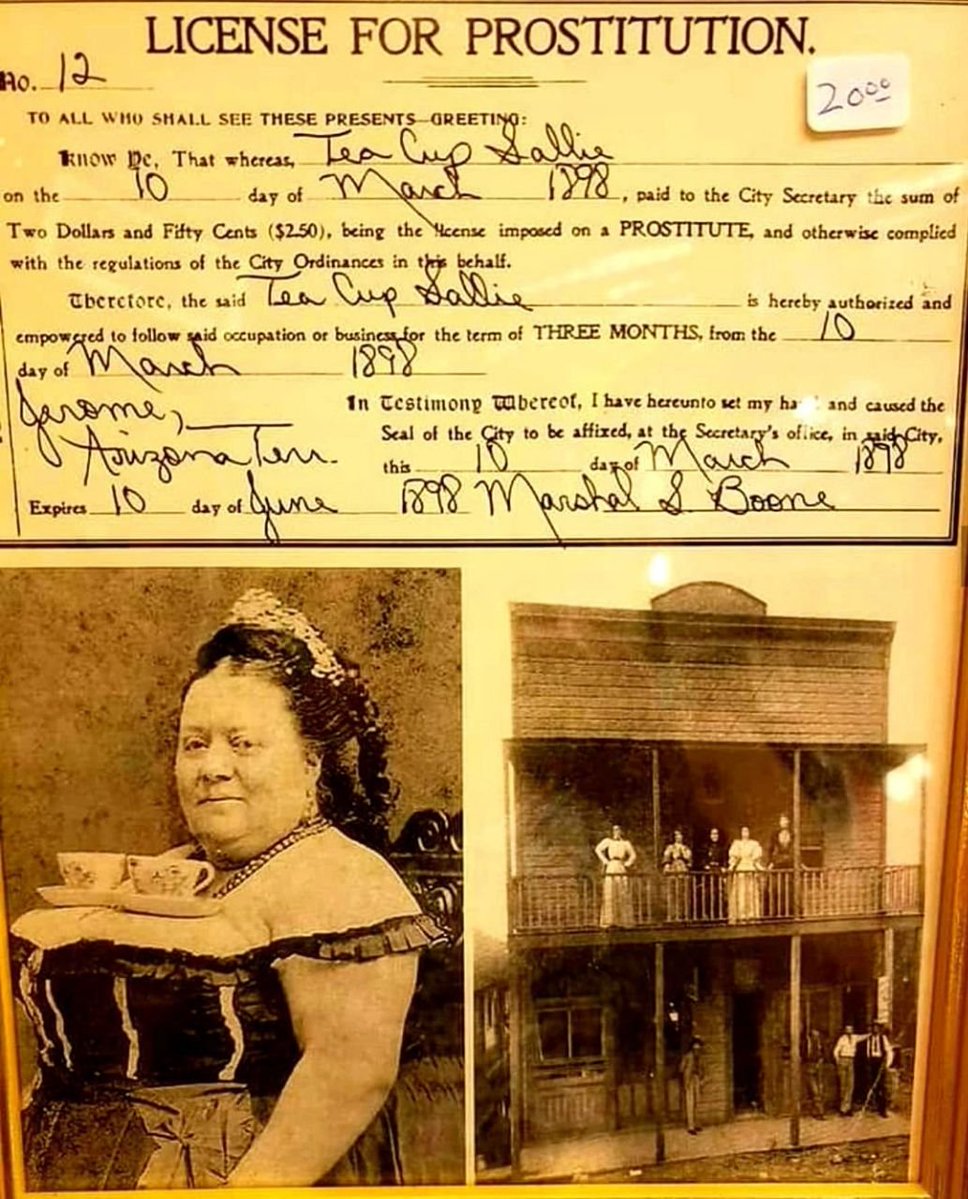 LICENSE FOR PROSTITUTION.
No. 12
20.00
TO ALL WHO SHALL SEE THESE PRESENTS—GREETING:
Know Ye, That whereas, Tea Cup Sallie
on the 10 day of March 1898, paid to the City Secretary the sum of
Two Dollars and Fifty Cents ($2.50), being the license imposed on a PROSTITUTE, and otherwise complied
with the regulations of the City Ordinances in this behalf.
Therefore, the said Tea Cup Sallie is hereby authorized and
empowered to follow said occupation or business for the term of THREE MONTHS, from the 10
day of March 1898
Jerome,
Arizona Terr.
In Testimony Whereof, I have hereunto set my hand and caused the
Seal of the City to be affixed, at the Secretary's office, in said City,
this 10 day of March 1898
Expires 10 day of June 1898 Marshal S Boone